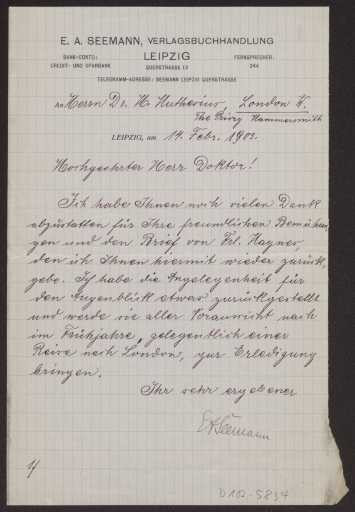 E. A. SEEMANN, VERLAGSBUCHHANDLUNG
BANK-CONTO:
CREDIT- UND SPARBANK
LEIPZIG
QUERSTRASSE 13
FERNSPRECHER:
244
TELEGRAMM-ADRESSE: SEEMANN LEIPZIG QUERSTRASSE
An Herrn Dr. H. Muthesius, London W.
The Priory Hammersmith
LEIPZIG, am 14. Febr. 1902.
Hochgeehrter Herr Doktor!
Ich habe Ihnen noch vielen Dank
abzustatten für Ihre freundlichen Bemühun-
gen und den Brief von Frl.
den ich Ihnen hiermit wieder zurück-
gebe. Ich habe die Angelegenheit für
den Augenblick etwas zurückgestellt
und werde sie aller Voraussicht nach
im Frühjahre, gelegentlich einer
Reise nach London, zur Erledigung
bringen.
Ihr sehr ergebener
EASeemann
D 102-5834